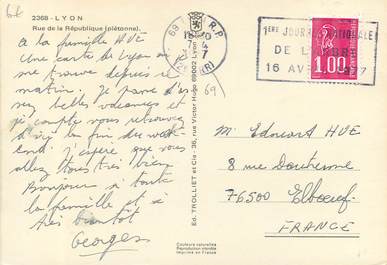 66
2368 - LYON
Rue de la République (piétonne).
à la famille HUE
Une carte de Lyon où
me trouve depuis ce
matin. Je passe d'as
sez belles vacances et
je compte vous retrouver
d'ici la fin du
J'espère que vous
allez tous très bien
Bonjour à toute
la famille et à
très bientôt
Georges
Ed. TROLLIET et Cie - 36, rue Victor Hugo 69002 Lyon
69
69 LYON R.P
1ERE JOURNEE NATIONALE
DE L'ARBRE
16 AVRIL 1977
1,00
M. Edouard HUE
8 rue Dautresme
76500 Elbeuf
FRANCE
Couleurs naturelles
Reproduction interdite
Imprimé en France